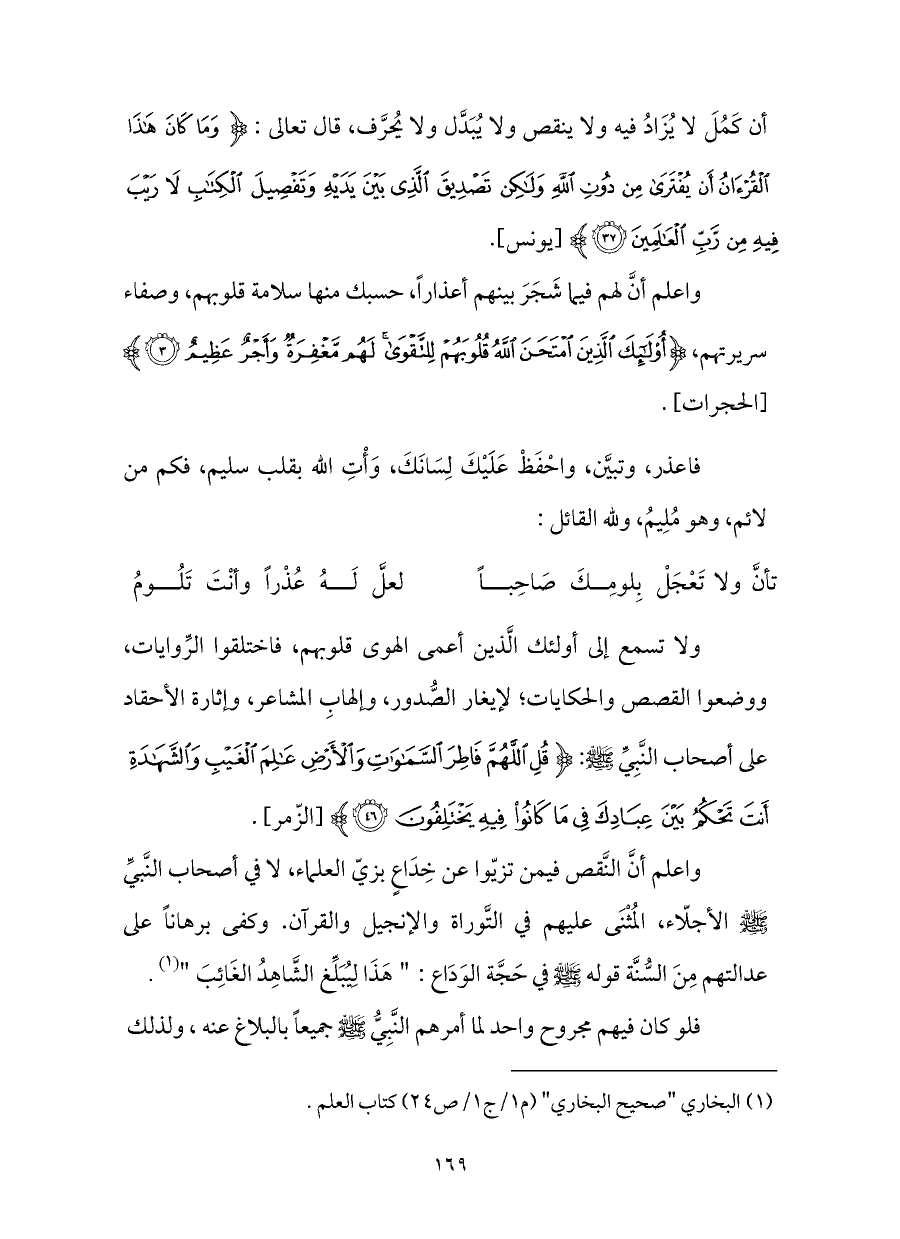 أن كَمُلَ لا يُزَادُ فيه ولا ينقص ولا يُبَدَّل ولا يُحرَّف، قال تعالى : ﴿ وَمَا كَانَ هَٰذَا
ٱلْقُرْءَانُ أَن يُفْتَرَىٰ مِن دُونِ ٱللَّهِ وَلَٰكِن تَصْدِيقَ ٱلَّذِى بَيْنَ يَدَيْهِ وَتَفْصِيلَ ٱلْكِتَٰبِ لَا رَيْبَ
فِيهِ مِن رَّبِّ ٱلْعَٰلَمِينَ ٣٧ ﴾ [يونس].
واعلم أنَّ لهم فيما شَجَرَ بينهم أعذاراً، حسبك منها سلامة قلوبهم، وصفاء
سريرتهم، ﴿ أُوْلَٰٓئِكَ ٱلَّذِينَ ٱمْتَحَنَ ٱللَّهُ قُلُوبَهُمْ لِلتَّقْوَىٰ ۚ لَهُم مَّغْفِرَةٌ وَأَجْرٌ عَظِيمٌ ٣ ﴾
[الحجرات] .
فاعذر، وتبيَّن، واحْفَظْ عَلَيْكَ لِسَانَكَ، وَأْتِ الله بقلب سليم، فكم من
لائم، وهو مُلِيمُ، ولله القائل :
تأنَّ ولا تَعْجَلْ بِلومِـــكَ صَاحِبـــاً لعلَّ لَـــهُ عُذْراً وأنْتَ تَلُـــومُ
ولا تسمع إلى أولئك الَّذين أعمى الهوى قلوبهم، فاختلقوا الرِّوايات،
ووضعوا القصص والحكايات؛ لإيغار الصُّدور، وإلهابِ المشاعر، وإثارة الأحقاد
على أصحاب النَّبِيِّ ﷺ: ﴿ قُلِ ٱللَّهُمَّ فَاطِرَ ٱلسَّمَٰوَٰتِ وَٱلْأَرْضِ عَٰلِمَ ٱلْغَيْبِ وَٱلشَّهَٰدَةِ
أَنتَ تَحْكُمُ بَيْنَ عِبَادِكَ فِى مَا كَانُوا۟ فِيهِ يَخْتَلِفُونَ ٤٦ ﴾ [الزّمر] .
واعلم أنَّ النَّقص فيمن تزيّوا عن خِدَاعٍ بزيّ العلماء، لا في أصحاب النَّبيِّ
ﷺ الأجلّاء، المُثْنَى عليهم في التَّوراة والإنجيل والقرآن. وكفى برهاناً على
عدالتهم مِنَ السُّنَّة قوله ﷺ في حَجَّة الوَدَاع : " هَذَا لِيُبَلِّغِ الشَّاهِدُ الغَائِبَ "(١) .
فلو كان فيهم مجروح واحد لما أمرهم النَّبِيُّ ﷺ جميعاً بالبلاغ عنه ، ولذلك
(١) البخاري "صحيح البخاري" (م١/ ج١/ ص٢٤) كتاب العلم .
١٦٩